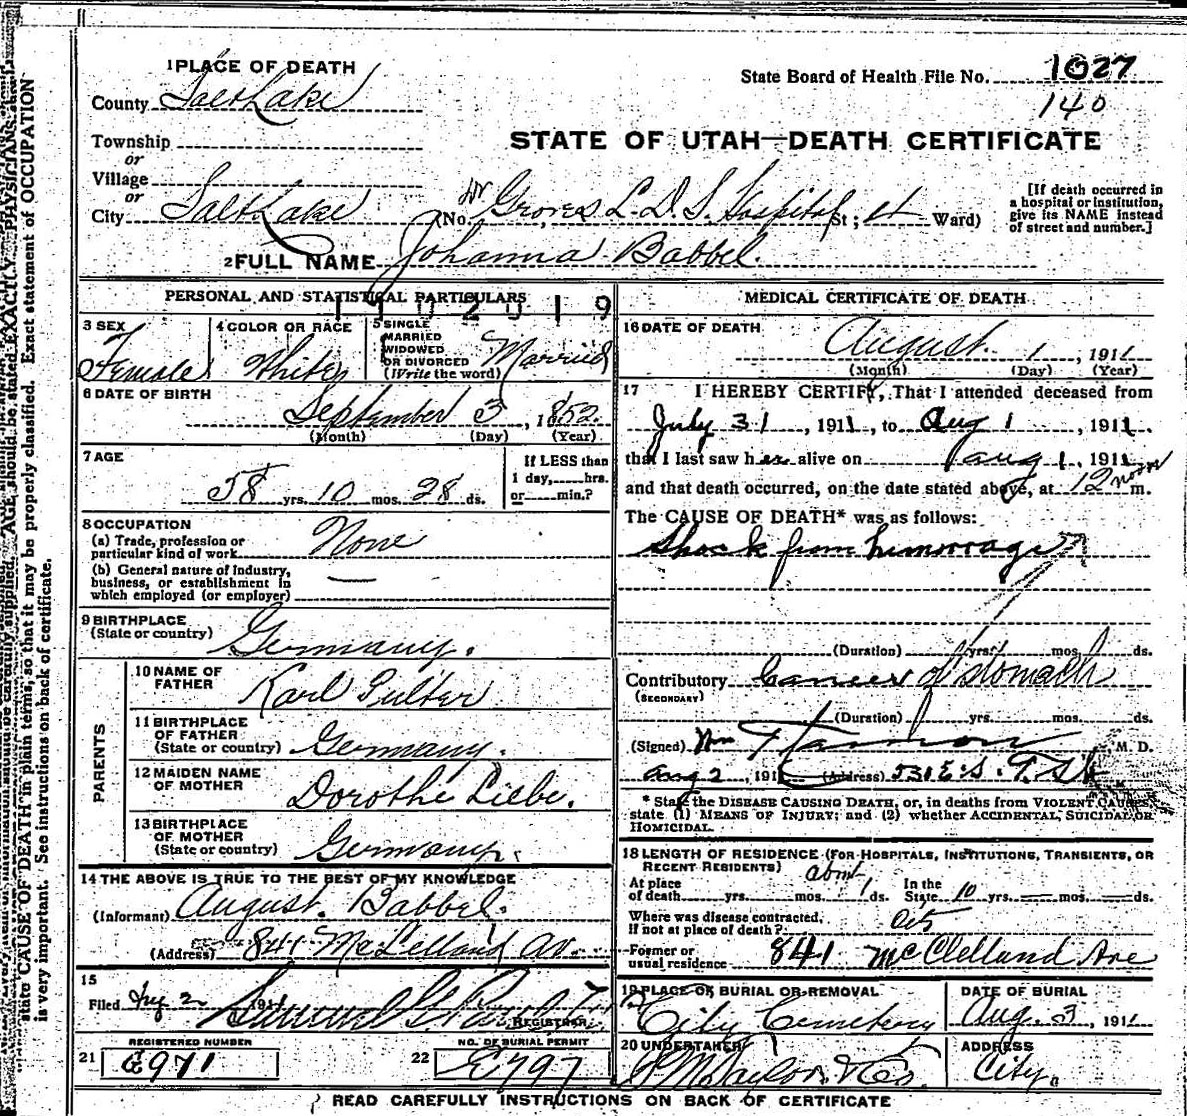 1 PLACE OF DEATH
State Board of Health File No. 1027
County Salt Lake
140
Township
STATE OF UTAH—DEATH CERTIFICATE
or
Village
or
City Salt Lake (No. Dr Groves L. D. S. Hospital St; Ward)
[If death occurred in a hospital or institution, give its NAME instead of street and number.]
2 FULL NAME Johanna Babbel.
PERSONAL AND STATISTICAL PARTICULARS
3 SEX
Female
4 COLOR OR RACE
White
5 SINGLE
MARRIED
WIDOWED
OR DIVORCED
(Write the word) Married
6 DATE OF BIRTH
September 3, 1852.
(Month) (Day) (Year)
7 AGE
58 yrs. 10 mos. 28 ds.
If LESS than
1 day, hrs.
or min.?
8 OCCUPATION
(a) Trade, profession or
particular kind of work None
(b) General nature of industry,
business, or establishment in
which employed (or employer) —
9 BIRTHPLACE
(State or country) Germany.
PARENTS
10 NAME OF
FATHER Karl
11 BIRTHPLACE
OF FATHER
(State or country) Germany.
12 MAIDEN NAME
OF MOTHER Dorothe Liebe.
13 BIRTHPLACE
OF MOTHER
(State or country) Germany.
14 THE ABOVE IS TRUE TO THE BEST OF MY KNOWLEDGE
(Informant) August Babbel.
(Address) 841 McLelland Av.
15
Filed 2 191
REGISTRAR
REGISTERED NUMBER
21 E971
NO. OF BURIAL PERMIT
22 E797
MEDICAL CERTIFICATE OF DEATH
16 DATE OF DEATH
August 1, 1911
(Month) (Day) (Year)
17 I HEREBY CERTIFY, That I attended deceased from
July 31, 1911, to Aug 1, 1911.
that I last saw her alive on Aug 1, 1911
and that death occurred, on the date stated above, at 12 noon m.
The CAUSE OF DEATH* was as follows:
Shock from hemorrage
(Duration) yrs. mos. ds.
Contributory Cancer of stomach
(SECONDARY)
(Duration) yrs. mos. ds.
(Signed) Wm M. D.
Aug 2, 191 (Address)
* State the DISEASE CAUSING DEATH, or, in deaths from VIOLENT CAUSES,
state (1) MEANS OF INJURY; and (2) whether ACCIDENTAL, SUICIDAL OR
HOMICIDAL.
18 LENGTH OF RESIDENCE (FOR HOSPITALS, INSTITUTIONS, TRANSIENTS, OR
RECENT RESIDENTS)
At place
of death yrs. mos. abut 1 ds.
In the
State 10 yrs. mos. ds.
Where was disease contracted,
if not at place of death?
Former or
usual residence 841 McClelland Ave
19 PLACE OR BURIAL OR REMOVAL
City Cemetery
DATE OF BURIAL
Aug. 3, 1911
20 UNDERTAKER
Taylor & Co.
ADDRESS
City.
READ CAREFULLY INSTRUCTIONS ON BACK OF CERTIFICATE
state CAUSE OF DEATH in plain terms, so that it may be properly classified. Exact statement of OCCUPATION
is very important. See instructions on back of certificate.